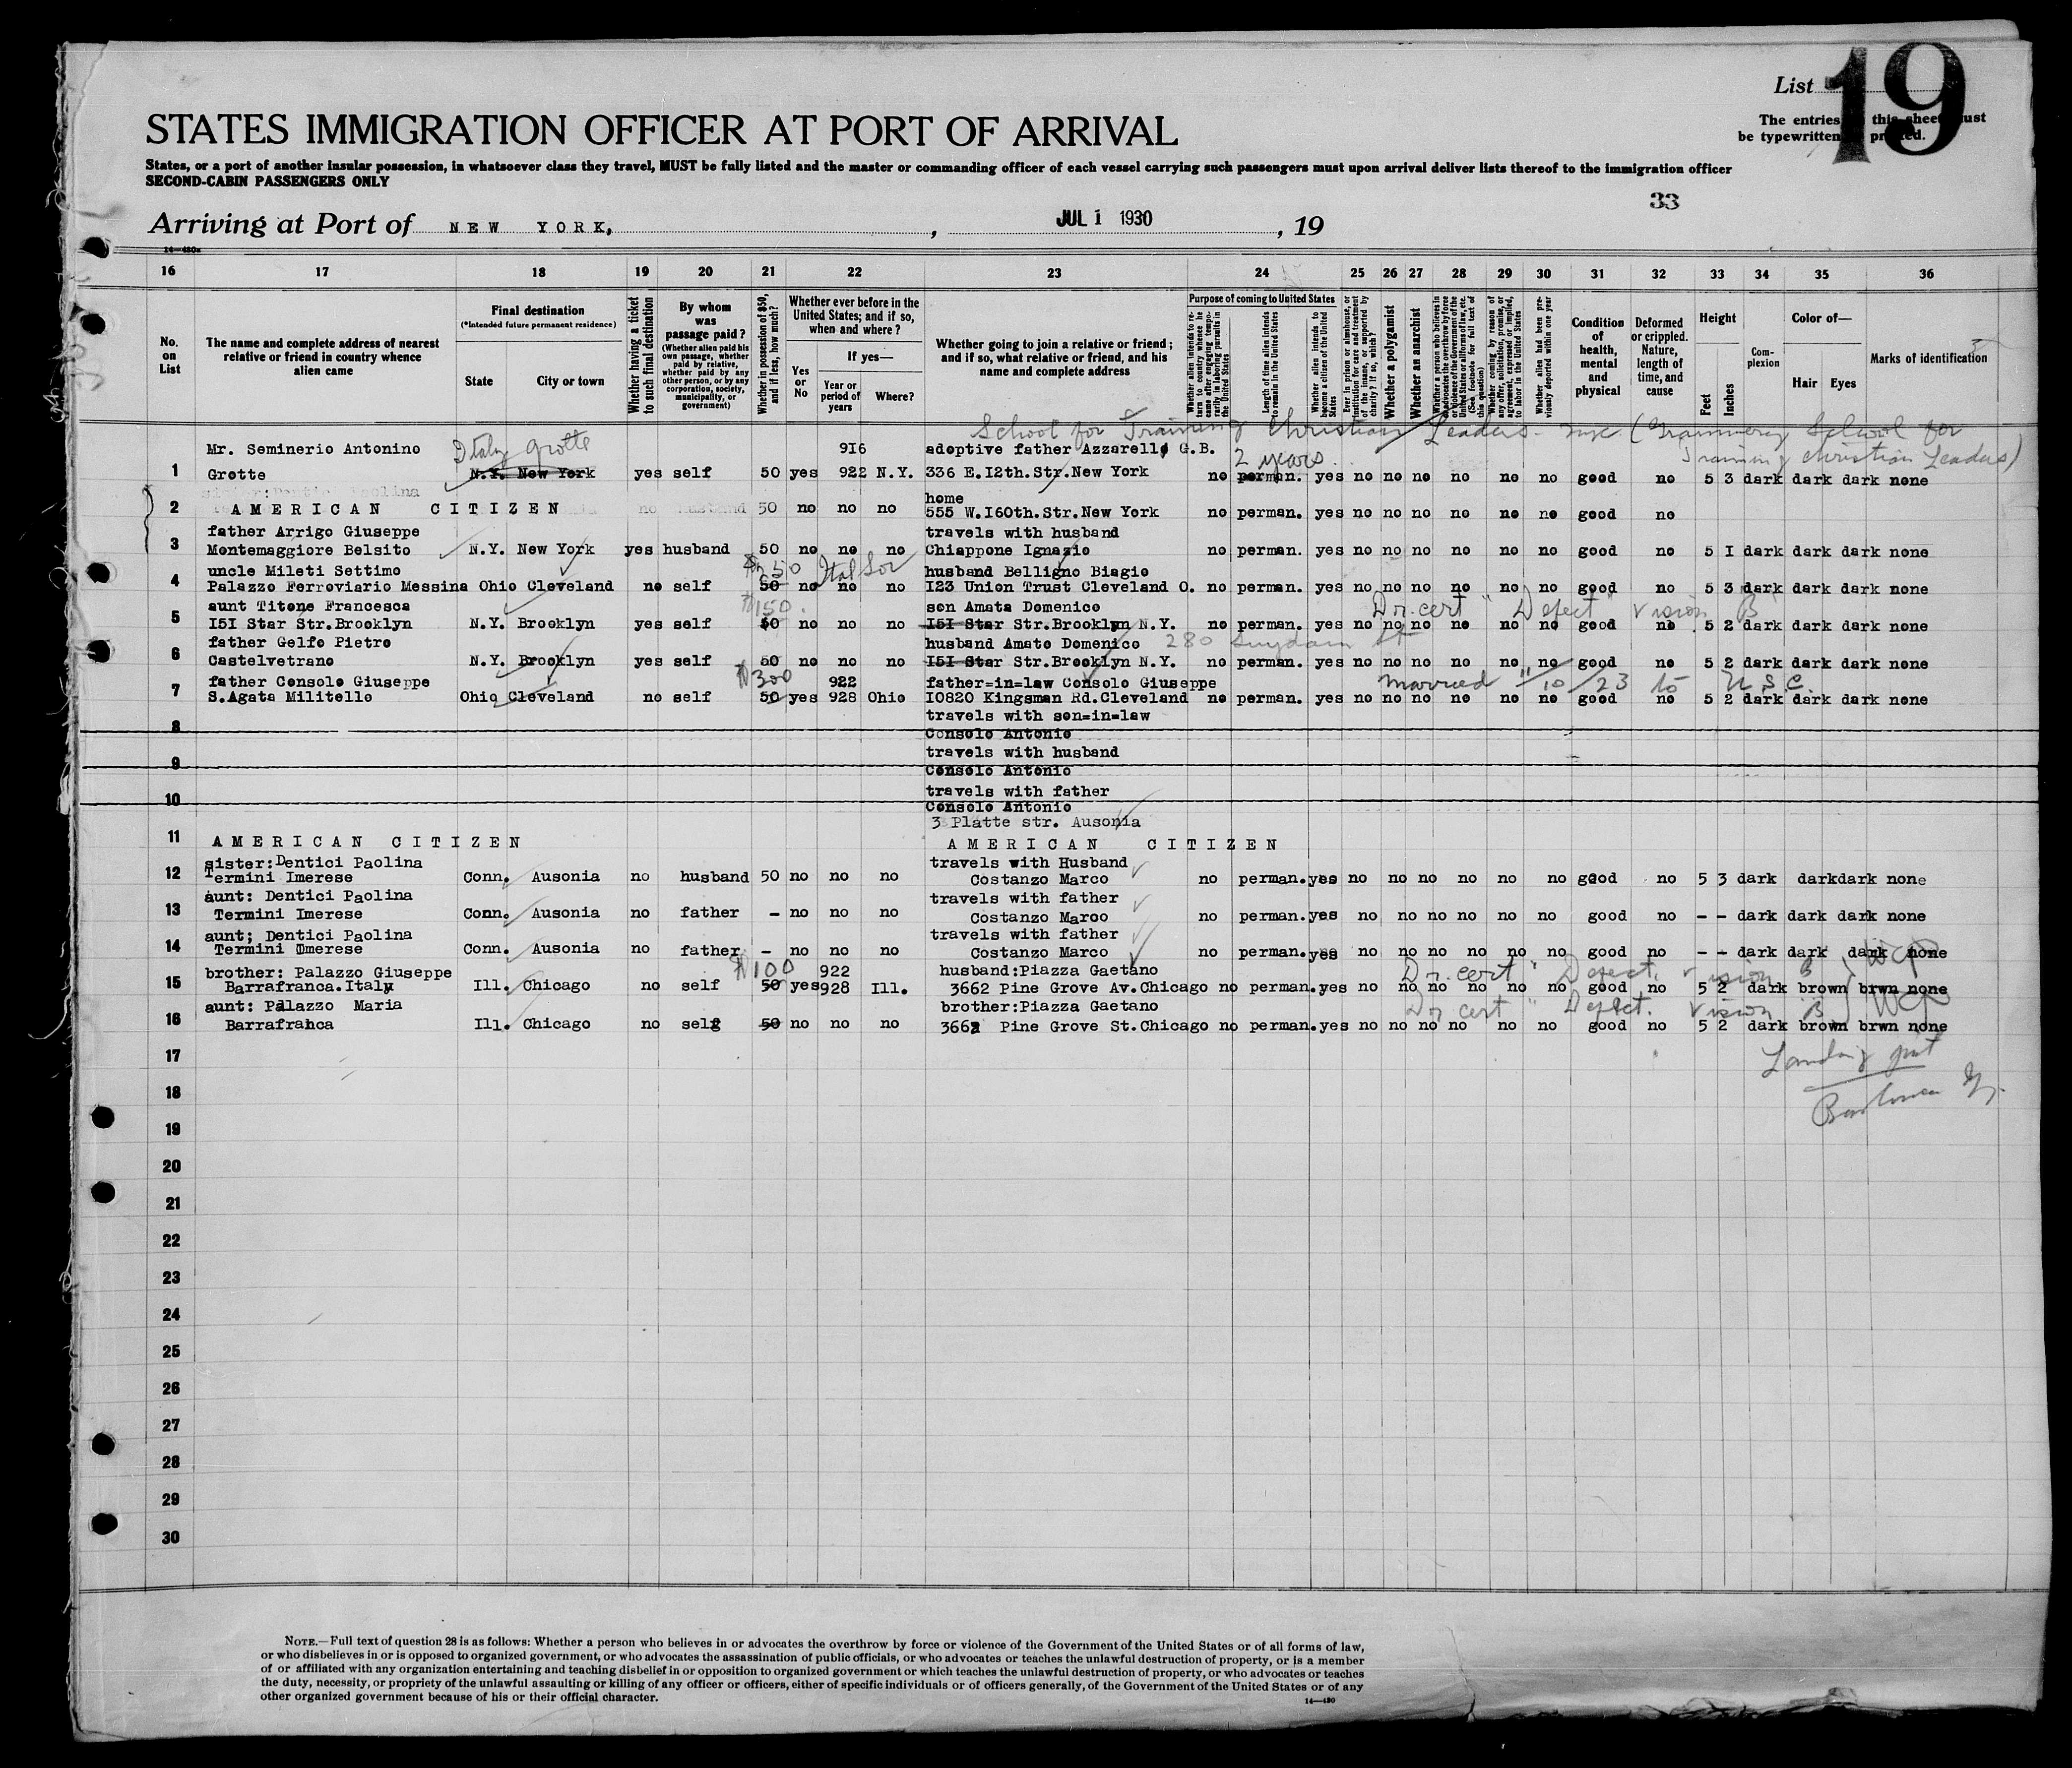 List 19
The entries on this sheet must
be typewritten or printed.
STATES IMMIGRATION OFFICER AT PORT OF ARRIVAL
States, or a port of another insular possession, in whatsoever class they travel, MUST be fully listed and the master or commanding officer of each vessel carrying such passengers must upon arrival deliver lists thereof to the immigration officer
SECOND-CABIN PASSENGERS ONLY
33
Arriving at Port of NEW YORK, , JUL 1 1930 , 19
14—480a
16 17 18 19 20 21 22 23 24 25 26 27 28 29 30 31 32 33 34 35 36
No. on List
The name and complete address of nearest relative or friend in country whence alien came
Final destination
(*Intended future permanent residence)
State City or town
Whether having a ticket to such final destination
By whom was passage paid?
(Whether alien paid his own passage, whether paid by relative, whether paid by any other person, or by any corporation, society, municipality, or government)
Whether in possession of $50, and if less, how much?
Whether ever before in the United States; and if so, when and where?
Yes or No
If yes—
Year or period of years
Where?
Whether going to join a relative or friend; and if so, what relative or friend, and his name and complete address
Purpose of coming to United States
Whether alien intends to return to country whence he came after engaging temporarily in laboring pursuits in the United States
Length of time alien intends to remain in the United States
Whether alien intends to become a citizen of the United States
Ever in prison or almshouse, or institution for care and treatment of the insane, or supported by charity? If so, which?
Whether a polygamist
Whether an anarchist
Whether a person who believes in or advocates the overthrow by force or violence of the Government of the United States or all forms of law, etc. (See footnote for full text of this question)
Whether coming by reason of any offer, solicitation, promise, or agreement, expressed or implied, to labor in the United States
Whether alien had been previously deported within one year
Condition of health, mental and physical
Deformed or crippled. Nature, length of time, and cause
Height
Feet Inches
Complexion
Color of—
Hair Eyes
Marks of identification
School for Training Christian Leaders - nyc (Trainning School for
Training Christian Leaders)
Mr. Seminerio Antonino Italy Grotte 916 adoptive father Azzarello G.B. 2 years
1 Grotte N.Y. New York yes self 50 yes 922 N.Y. 336 E.I2th.Str.New York no perman. yes no no no no no no good no 5 3 dark dark dark none
sister: Dentici Paolina
home
2 AMERICAN CITIZEN no husband 50 no no no 555 W.I60th.Str.New York no perman. yes no no no no no no good no
father Arrigo Giuseppe travels with husband
3 Montemaggiore Belsito N.Y. New York yes husband 50 no no no Chiappone Ignazio no perman. yes no no no no no no good no 5 I dark dark dark none
uncle Mileti Settimo $250 husband Belligno Biagio
4 Palazzo Ferroviario Messina Ohio Cleveland no self 50 no no no I23 Union Trust Cleveland O. no perman. yes no no no no no no good no 5 3 dark dark dark none
aunt Titone Francesca $150. son Amata Domenico Dr. cert "Defect" vision B
5 I5I Star Str.Brooklyn N.Y. Brooklyn yes self 50 no no no I5I Star Str.Brooklyn N.Y. no perman. yes no no no no no no good no 5 2 dark dark dark none
father Gelfo Pietro husband Amato Domenico 280 Suydam St
6 Castelvetrano N.Y. Brooklyn yes self 50 no no no I5I Star Str.Brooklyn N.Y. no perman. yes no no no no no no good no 5 2 dark dark dark none
father Consolo Giuseppe $300 922 father=in=law Consolo Giuseppe married 11/10/23 to U.S.C.
7 S.Agata Militello Ohio Cleveland no self 50 yes 928 Ohio I0820 Kingsman Rd.Cleveland no perman. yes no no no no no no good no 5 2 dark dark dark none
travels with son=in=law
8 Consolo Antonio
travels with husband
9 Consolo Antonio
travels with father
10 Consolo Antonio
3 Platte str. Ausonia
11 AMERICAN CITIZEN AMERICAN CITIZEN
sister: Dentici Paolina travels with Husband
12 Termini Imerese Conn. Ausonia no husband 50 no no no Costanzo Marco no perman. yes no no no no no no good no 5 3 dark dark dark none
aunt: Dentici Paolina travels with father
13 Termini Imerese Conn. Ausonia no father - no no no Costanzo Marco no perman. yes no no no no no no good no - - dark dark dark none
aunt; Dentici Paolina travels with father
14 Termini Imerese Conn. Ausonia no father - no no no Costanzo Marco no perman. yes no no no no no no good no - - dark dark dark none
brother: Palazzo Giuseppe $100 922 husband:Piazza Gaetano Dr. cert "Defect. vision B
15 Barrafranca.Italy Ill. Chicago no self 50 yes 928 Ill. 3662 Pine Grove Av.Chicago no perman. yes no no no no no no good no 5 2 dark brown brwn none
aunt: Palazzo Maria brother:Piazza Gaetano Dr cert "Defect. vision B
16 Barrafranca Ill. Chicago no self 50 no no no 3662 Pine Grove St.Chicago no perman. yes no no no no no no good no 5 2 dark brown brwn none
17
18
19
20
21
22
23
24
25
26
27
28
29
30
NOTE.—Full text of question 28 is as follows: Whether a person who believes in or advocates the overthrow by force or violence of the Government of the United States or of all forms of law,
or who disbelieves in or is opposed to organized government, or who advocates the assassination of public officials, or who advocates or teaches the unlawful destruction of property, or is a member
of or affiliated with any organization entertaining and teaching disbelief in or opposition to organized government or which teaches the unlawful destruction of property, or who advocates or teaches
the duty, necessity, or propriety of the unlawful assaulting or killing of any officer or officers, either of specific individuals or of officers generally, of the Government of the United States or of any
other organized government because of his or their official character.
14—480